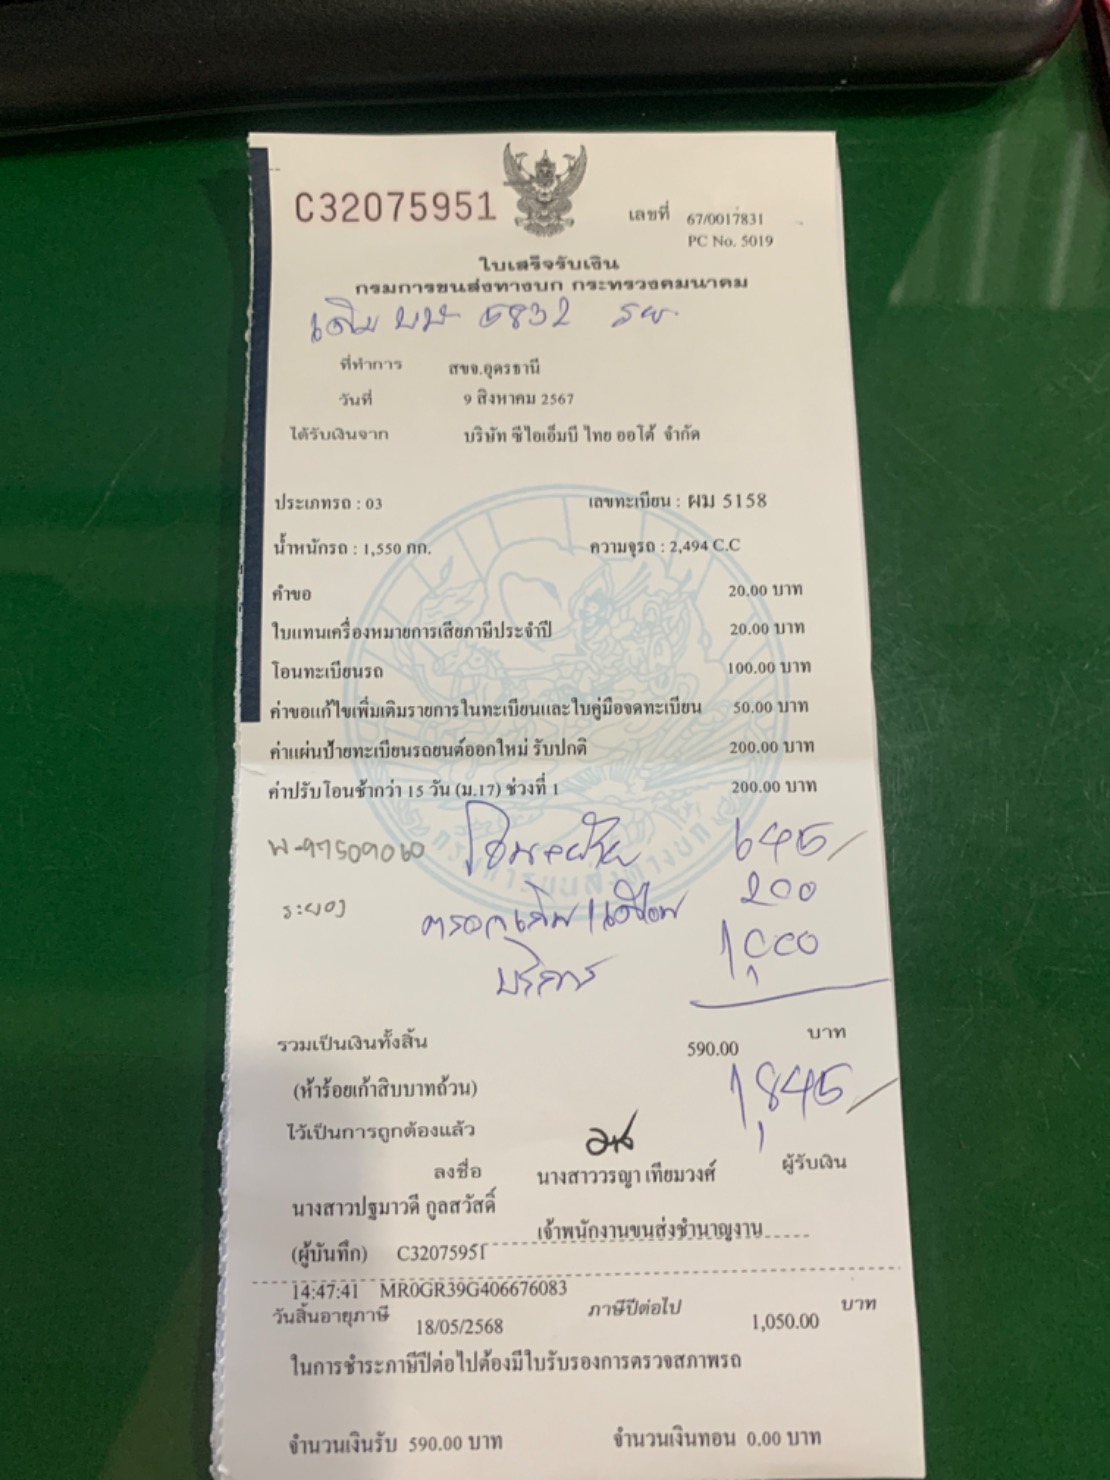 C32075951
เลขที่ 67/0017831
PC No. 5019
ใบเสร็จรับเงิน
กรมการขนส่งทางบก กระทรวงคมนาคม
เดิม 5832 รย
ที่ทำการ สขจ.อุดรธานี
วันที่ 9 สิงหาคม 2567
ได้รับเงินจาก บริษัท ซีไอเอ็มบี ไทย ออโต้ จำกัด
ประเภทรถ : 03 เลขทะเบียน : ผม 5158
น้ำหนักรถ : 1,550 กก. ความจุรถ : 2,494 C.C
คำขอ 20.00 บาท
ใบแทนเครื่องหมายการเสียภาษีประจำปี 20.00 บาท
โอนทะเบียนรถ 100.00 บาท
ค่าขอแก้ไขเพิ่มเติมรายการในทะเบียนและใบคู่มือจดทะเบียน 50.00 บาท
ค่าแผ่นป้ายทะเบียนรถยนต์ออกใหม่ รับปกติ 200.00 บาท
ค่าปรับโอนช้ากว่า 15 วัน (ม.17) ช่วงที่ 1 200.00 บาท
กรมการขนส่งทางบก
645
ระยอง 200
บริการ 1,000
รวมเป็นเงินทั้งสิ้น 590.00 บาท
(ห้าร้อยเก้าสิบบาทถ้วน) 1,845
ไว้เป็นการถูกต้องแล้ว
ลงชื่อ นางสาววรญา เทียมวงศ์ ผู้รับเงิน
นางสาวปฐมาวดี กูลสวัสดิ์
เจ้าพนักงานขนส่งชำนาญงาน
(ผู้บันทึก) C32075951
14:47:41 MR0GR39G406676083
วันสิ้นอายุภาษี 18/05/2568 ภาษีปีต่อไป 1,050.00 บาท
ในการชำระภาษีปีต่อไปต้องมีใบรับรองการตรวจสภาพรถ
จำนวนเงินรับ 590.00 บาท จำนวนเงินทอน 0.00 บาท